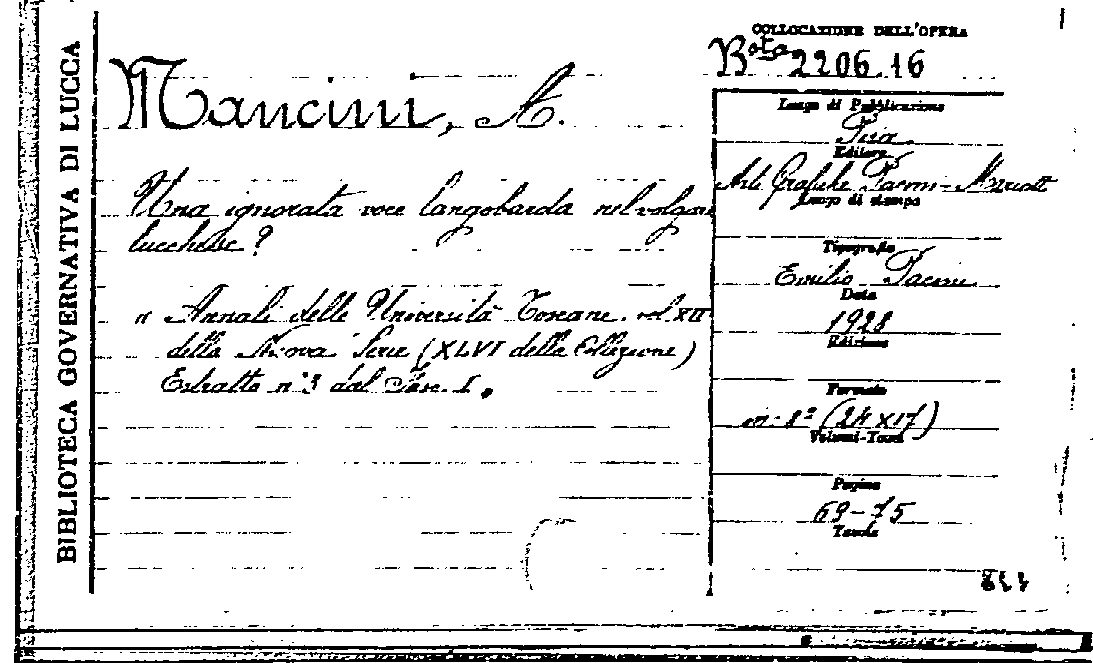 BIBLIOTECA GOVERNATIVA DI LUCCA
Mancini, A.
Una ignorata voce langobarda nel volgare
lucchese?
" Annali delle Università Toscane. vol XII
della Nuova Serie (XLVI della Collezione)
Estratto n° 3 dal Fasc. I.
COLLOCAZIONE DELL'OPERA
Bta 2206.16
Luogo di Pubblicazione
Pisa
Editore
Arti Grafiche Pacini-Mariotti
Luogo di stampa
Tipografia
Emilio Pacini
Data
1928
Edizione
Formato
in-8° (24x17)
Volumi-Tomi
Pagine
69-75
Tavole